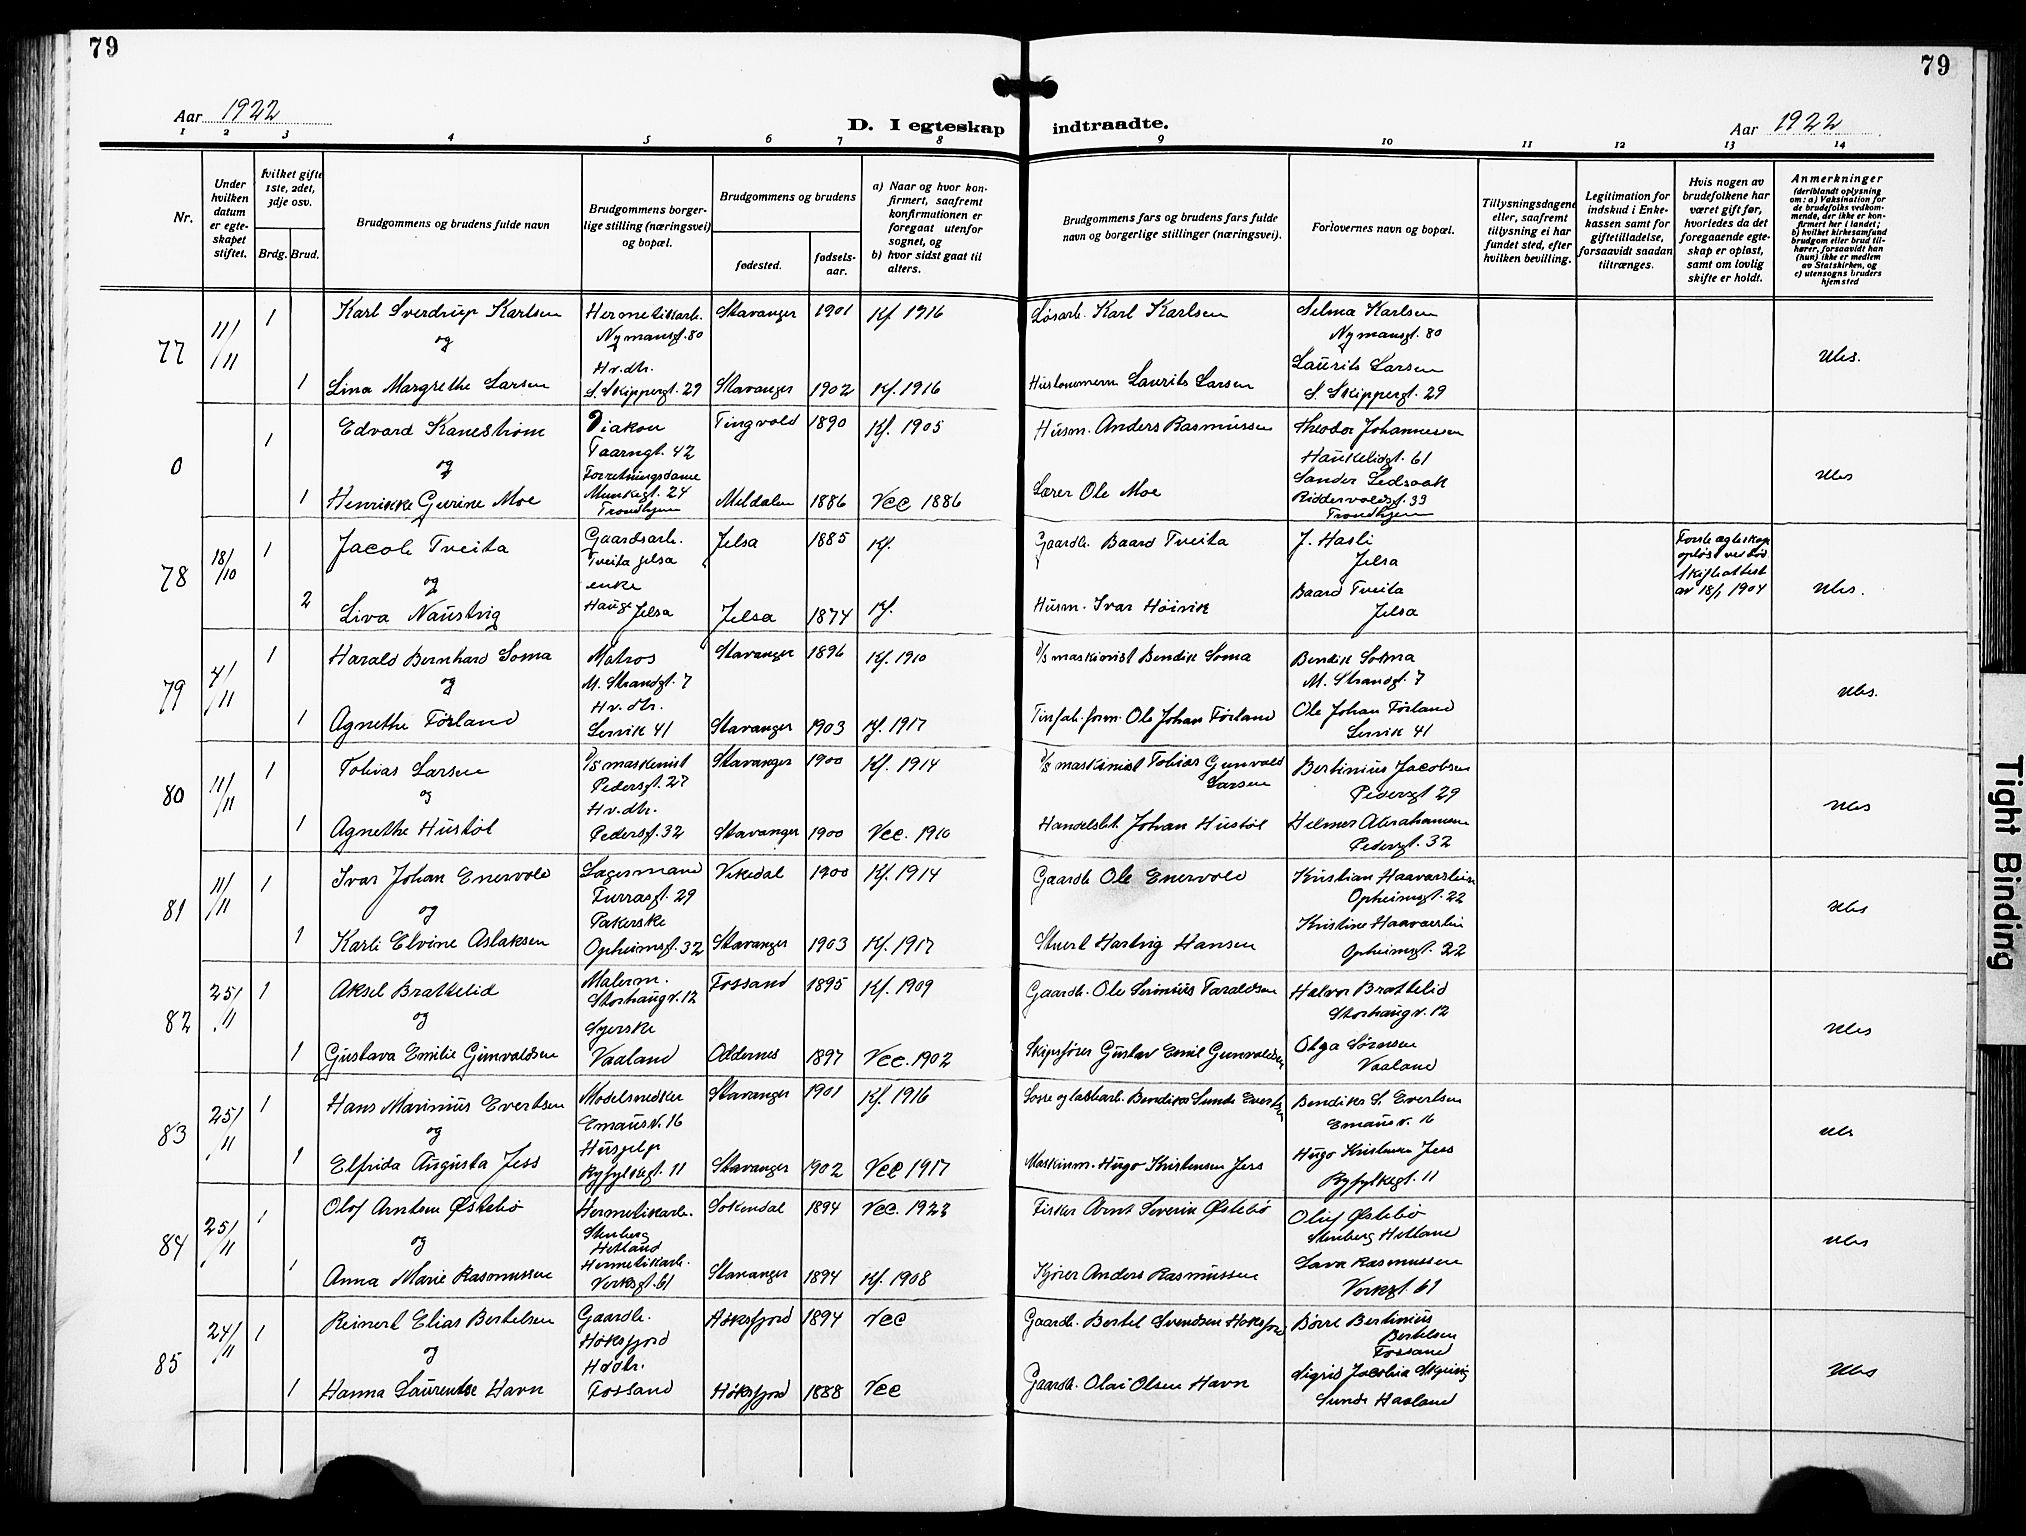 79
79
Aar 1922
D. I egteskap indtraadte.
Aar 1922
1 2 3 4 5 6 7 8 9 10 11 12 13 14
Nr.
Under hvilken datum er egteskapet stiftet.
hvilket gifte 1ste, 2det, 3dje osv.
Brdg. Brud.
Brudgommens og brudens fulde navn
Brudgommens borgerlige stilling (næringsvei) og bopæl.
Brudgommens og brudens
fødested.
fødselsaar.
a) Naar og hvor konfirmert, saafremt konfirmutionen er foregaat utenfor sognet, og
b) hvor sidst gaat til alters.
Brudgommens fars og brudens fars fulde navn og borgerlige stillinger (næringsvei).
Forlovernes navn og bopæl.
Tillysningsdagene eller, saafremt tillysning ei har fundet sted, efter hvilken bevilling.
Legitimation for indskud i Enkekassen samt for giftetilladelse, forsaavidt saadan tiltrænges.
Hvis nogen av brudefolkene har været gift før, hvorledes da det foregaaende egteskap er opløst, samt om lovlig skifte er holdt.
Anmerkninger
(deriblandt oplysning om: a) Vaksination for de brudefolks vedkommende, der ikke er konfirmert her i landet; b) hvilket kirkesamfund brudgom eller brud tilhører, forsaavidt han (hun) ikke er medlem av Statskirken, og c) utensogns bruders hjemsted
77 11/11 1 Karl Sverdrup Karlsen Hermetikarb. Nymansgt. 80 Stavanger 1901 Kf. 1916 Løsarb. Karl Karlsen Selma Karlsen Nymansgt. 80
og
1 Lina Margrethe Larsen Hv.dtr. S. Skippergt. 29 Stavanger 1902 Kf. 1916 Laurits Larsen Laurits Larsen S. Skippergt. 29 Ubs.
0 1 Edvard Kanestrøm Diakon Taarngt. 42 Tingvold 1890 Kf. 1905 Husm. Anders Rasmussen Theodor Johannesen Haukelidgt. 61
og
1 Henrikke Gurine Moe Forretningsdame Munkegt. 24 Trondhjem Meldalen 1886 Vcc 1886 Lærer Ole Moe Sander Riddervoldsgt. 33 Trondhjem Ubs
78 18/10 1 Jacob Tveita Gaardsarb. Tveita Jelsa Jelsa 1885 Kf. Gaardb. Baard Tveita J. Hasli Jelsa
og
2 Liva Naustvig enke Hauge Jelsa Jelsa 1874 Kf. Husm. Ivar Høivik Baard Tveita Jelsa Første egteskap opløst ved død Skifteattest av 18/1 1904 Ubs.
79 4/11 1 Harald Bernhard Soma Matros M. Strandgt. 7 Stavanger 1896 Kf. 1910 D/S maskinist Bendik Soma Bendik Soma M. Strandgt. 7
og
1 Agnethe Førland Hv.dtr. Lervik 41 Stavanger 1903 Kf. 1917 Ole Johan Førland Ole Johan Førland Lervik 41 Ubs.
80 11/11 1 Tobias Larsen D/S maskinist Pedersgt. 27 Stavanger 1900 Kf. 1914 D/S maskinist Tobias Gunvald Larsen Bertinius Jacobsen Pedersgt 29
og
1 Agnethe Hustøl Hv.dtr. Pedersgt. 32 Stavanger 1900 Vcc. 1910 Handelsbt. Johan Hustøl Helmer Abrahamsen Pedersgt. 32 Ubs
81 11/11 1 Ivar Johan Enervold Lagermand Furrasgt. 29 Vikedal 1900 Kf. 1914 Gaardb Ole Enervold Kristian Haavarstein Opheimsgt. 22
og
1 Karli Elvine Aslaksen Pakerske Opheimsgt. 32 Stavanger 1903 Kf. 1917 Stuert Hartvig Hansen Kristine Haavarstein Opheimsgt. 22 Ubs
82 25/11 1 Aksel Brattelid Malerm. Storhaugv. 12 Fossand 1895 Kf. 1909 Gaardb. Ole Serinius Taraldsen Halvor Brattelid Storhaugv. 12
og
1 Gustava Emilie Gunvaldsen Syerske Vaaland Oddernes 1897 Vcc. 1902 Skipsfører Gustav Emil Gunvaldsen Olga Sørensen Vaaland Ubs
83 25/11 1 Hans Marinius Evertsen Modelsnedker Emausv. 16 Stavanger 1901 Kf. 1916 Bendiks Sunde Evertsen Bendiks S. Evertsen Emausv. 16
og
1 Elfrida Augusta Jess Husjelp Ryfylkegt. 11 Stavanger 1902 Vcc 1917 Maskinm. Hugo Kristensen Jess Hugo Kristensen Jess Ryfylkegt. 11 Ubs
84 25/11 1 Olof Arntsen Østebø Hermetikarb. Stenberg Hetland Sokendal 1894 Vcc. 1922 Fisker Arnt Severin Østebø Oluf Østebø Stenberg Hetland
og
1 Anna Marie Rasmussen Hermetikarb. Verksgt. 61 Stavanger 1894 Kf. 1908 Kjører Anders Rasmussen Lava Rasmussen Verksgt. 61 Ubs
85 24/11 1 Reinert Elias Bertelsen Gaardb. Høksfjord Høksfjord 1894 Vcc Gaardb. Bertel Svendsen Høksfjord Børre Bertinius Bertelsen Fossand
og
1 Hanna Laurentse Havn Hv.dtr. Fossand Høksfjord 1888 Vcc Gaardb. Olai Olsen Havn Sigrid Jacobia Sunde Haaland Ubs
Tight Binding